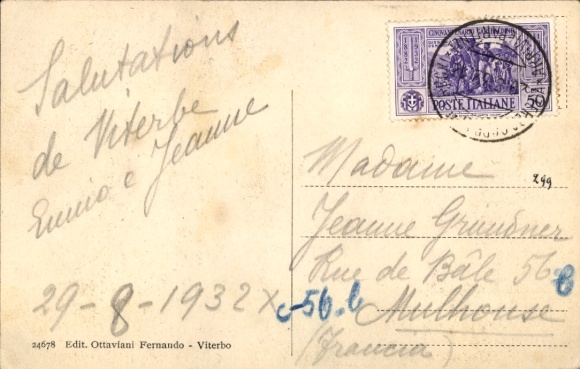 Salutations
de Viterbe
Ennio e Jeanne
29-8-1932 X
24678 Edit. Ottaviani Fernando - Viterbo
CINQVANTENARIO GARIBALDINO
POSTE ITALIANE
50
299
Madame
Jeanne Grundner
Rue de Bâle 56 b
c-56.b
Mulhouse
(Francia)